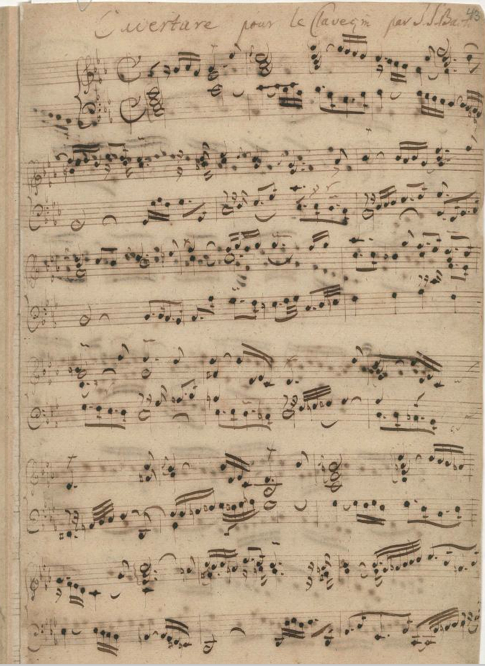 Ouverture pour le Clavecin par J. S. Bach